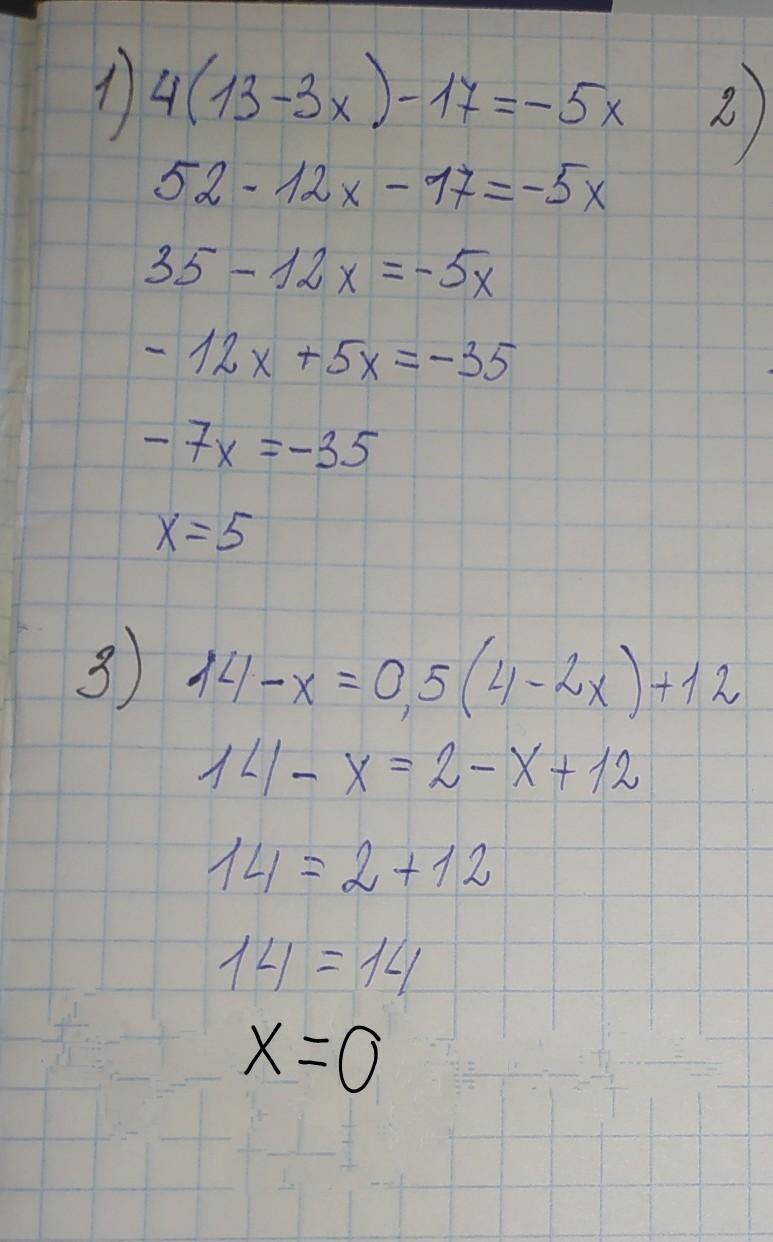 1) 4(13-3x)-17=-5x
2)
52-12x-17=-5x
35-12x=-5x
-12x+5x=-35
-7x=-35
x=5
3) 14-x=0,5(4-2x)+12
14-x=2-x+12
14=2+12
14=14
x=0